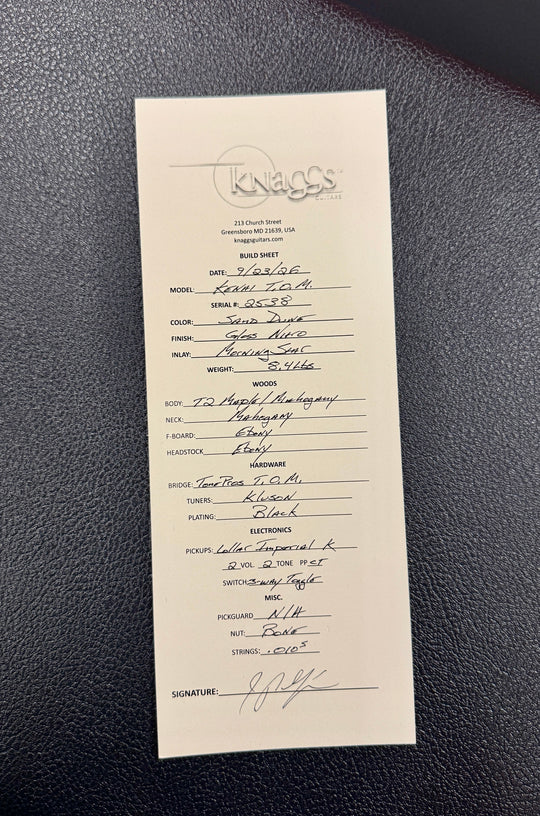 Knaggs™
GUITARS
213 Church Street
Greensboro MD 21639, USA
knaggsguitars.com
BUILD SHEET
DATE: 9/23/26
MODEL: KENAI T.O.M.
SERIAL #: 2538
COLOR: SAND DUNE
FINISH: Gloss NITRO
INLAY: MORNING STAR
WEIGHT: 8.4 Lbs
WOODS
BODY: T2 Maple / Mahogany
NECK: Mahogany
F-BOARD: Ebony
HEADSTOCK Ebony
HARDWARE
BRIDGE: TonePros T.O.M.
TUNERS: Kluson
PLATING: Black
ELECTRONICS
PICKUPS: Lollar Imperial K
2 VOL 2 TONE PP CT
SWITCH: 3-way Toggle
MISC.
PICKGUARD N/A
NUT: BONE
STRINGS: .010s
SIGNATURE: